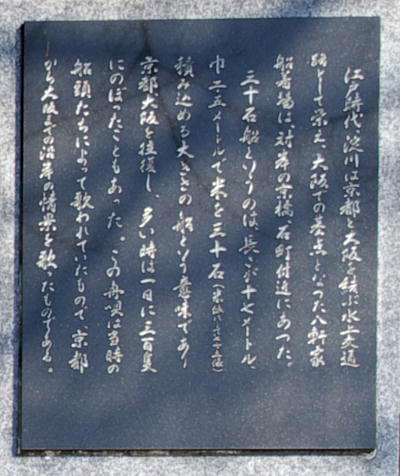 江戸時代、淀川は京都と大阪を結ぶ水上交通
路として栄え、大阪での基点となった八軒家
船着場は対岸の京橋石町付近にあった。
三十石船というのは、長さ十七メートル、
巾二・五メートルで米を三十石
積み込める大きさの船という意味であり
京都大阪を往復し、多い時は一日に三百隻
にのぼったこともあった。この舟唄は当時の
船頭たちによって歌われていたもので、京都
から大阪までの沿岸の情景を歌ったものである。